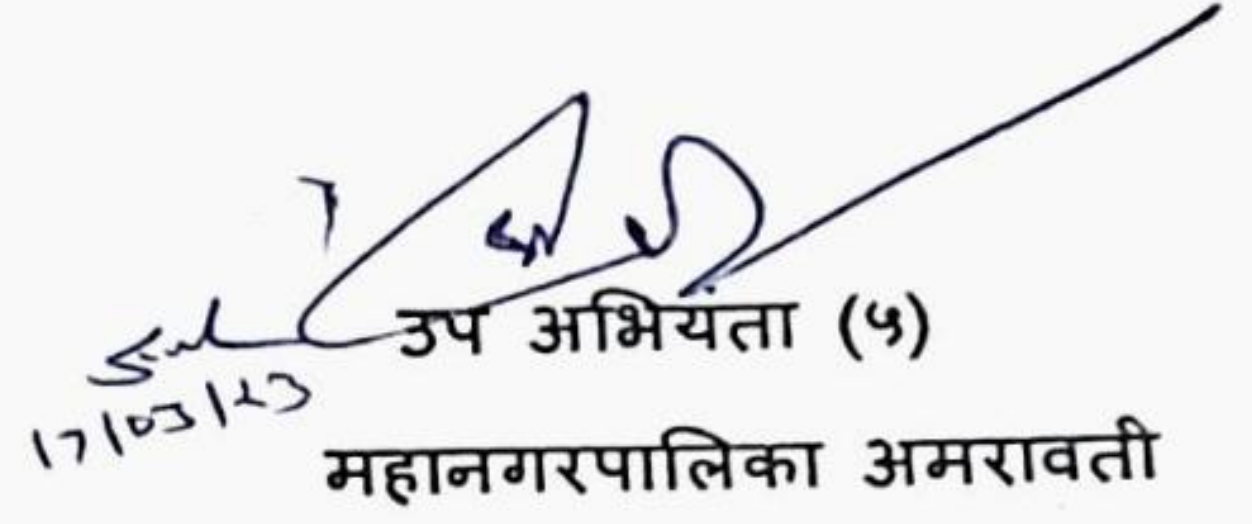 17/03/23
उप अभियंता (५)
महानगरपालिका अमरावती